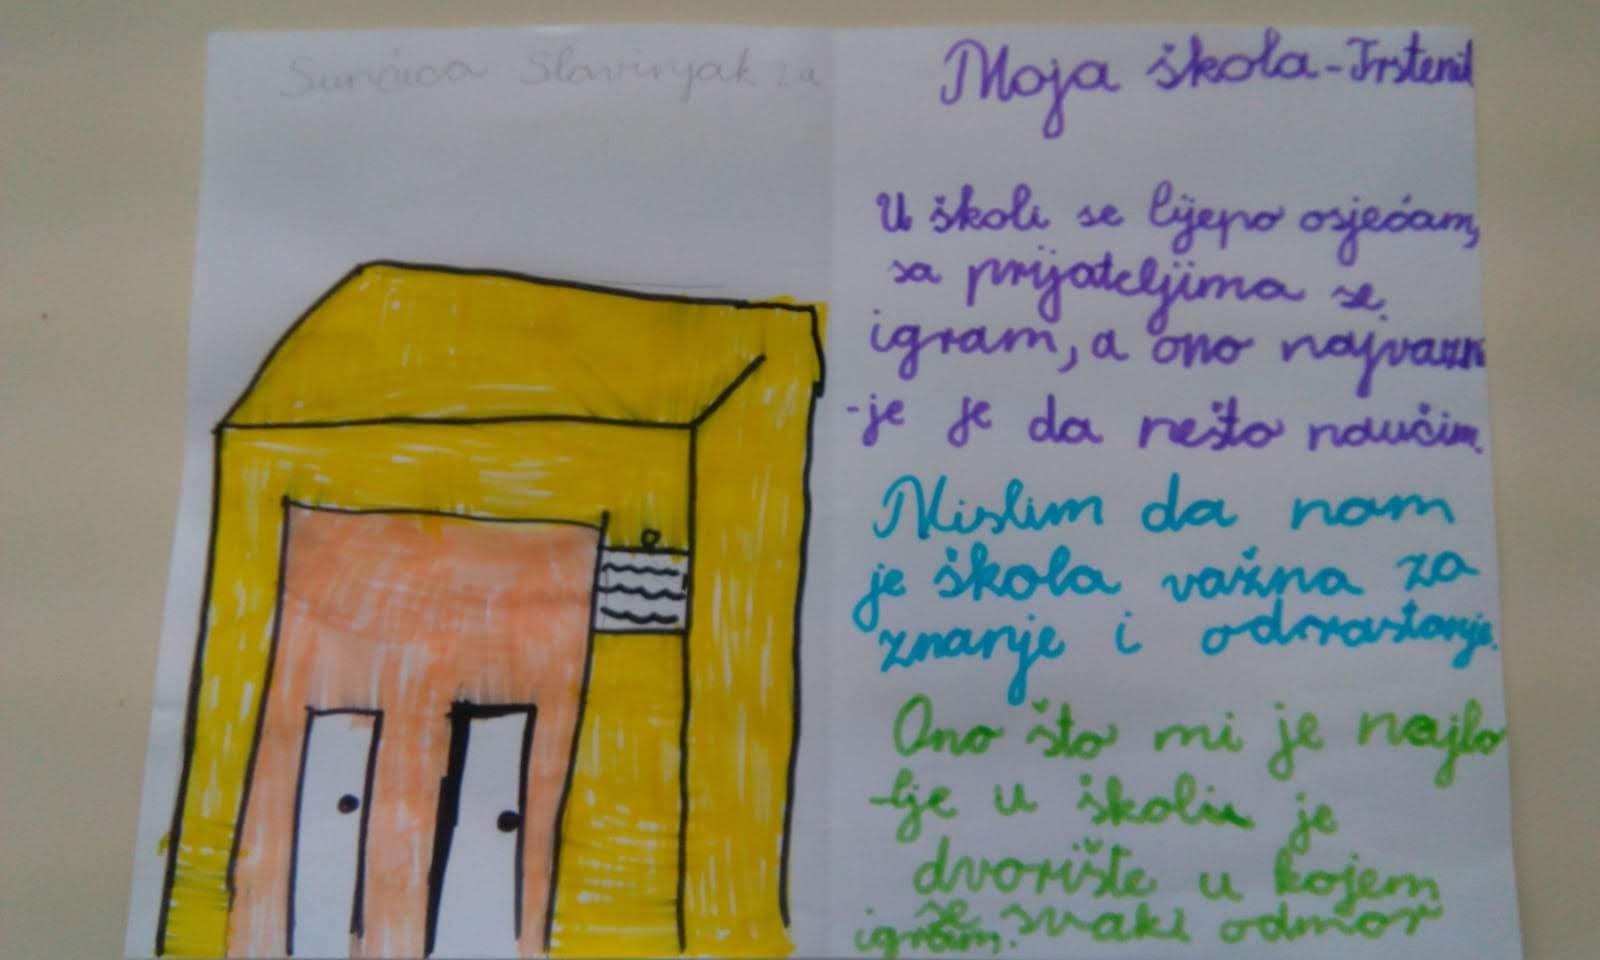 Sunčica Slavinjak 2.a
Moja škola-Trstenik
U školi se lijepo osjećam,
sa prijateljima se
igram, a ono najvažni
-je je da nešto naučim.
Mislim da nam
je škola važna za
znanje i odrastanje.
Ono što mi je najlo
-lje u školi je
dvorište u kojem
se svaki odmor
igram.